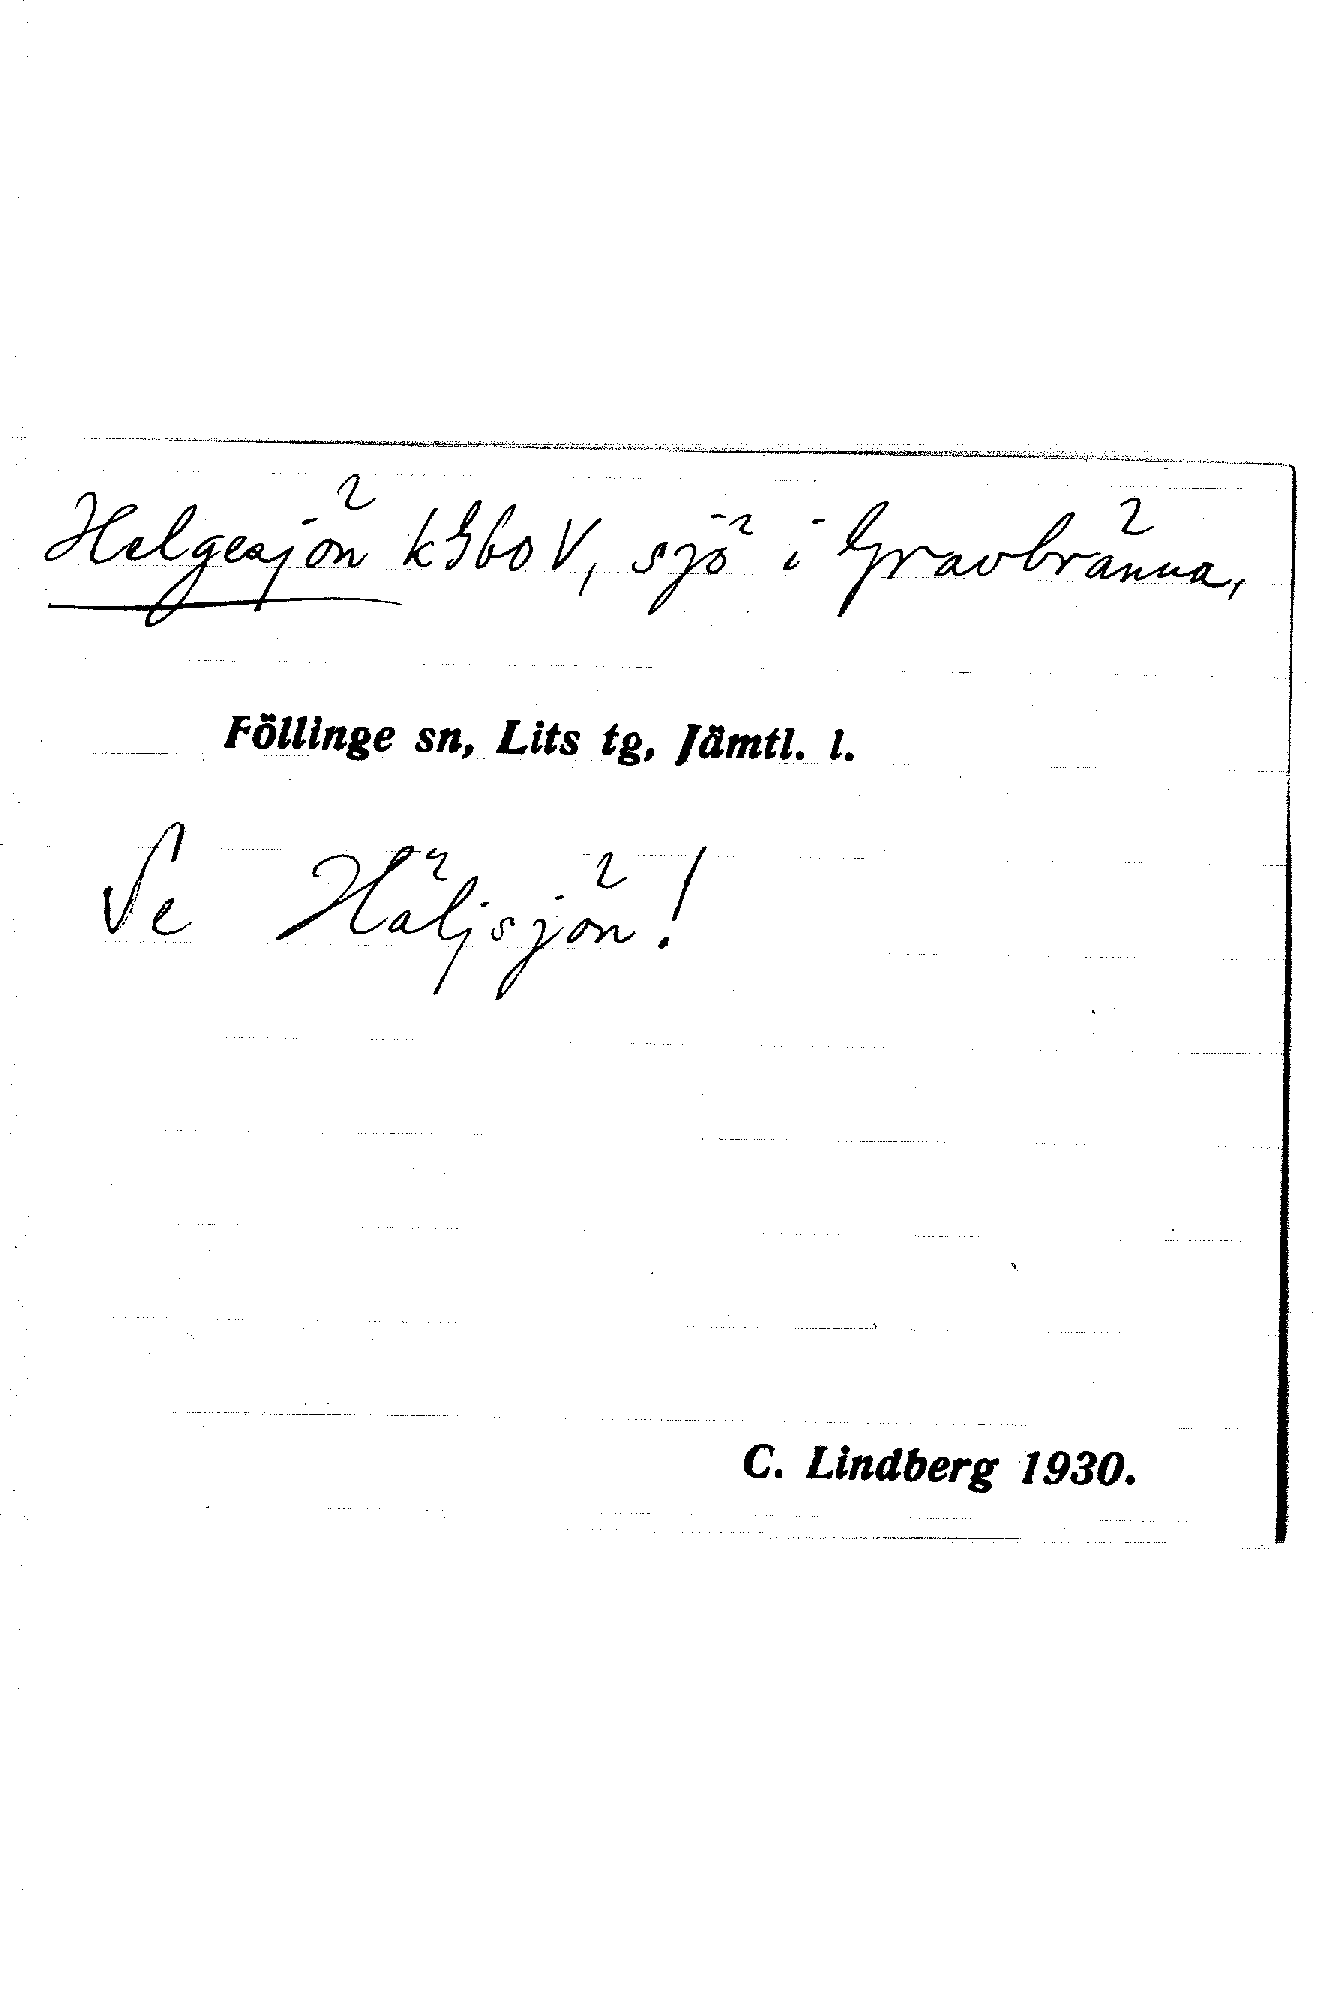 Helgesjön k Gbo V, sjö i Gravbränna,
Föllinge sn, Lits tg, Jämtl. l.
Se Häljsjön!
C. Lindberg 1930.